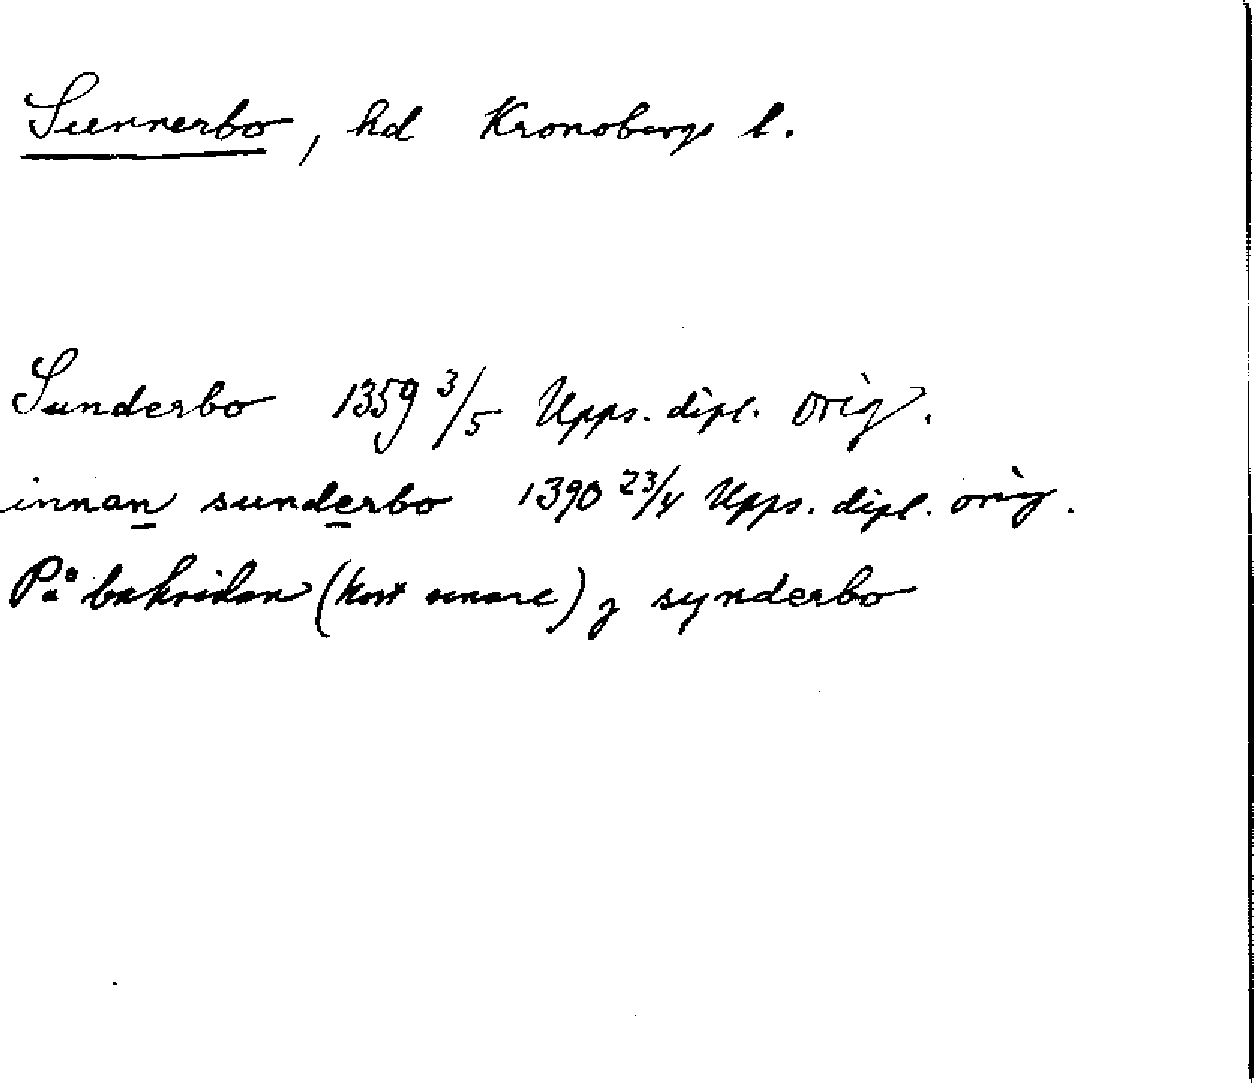 Sunnerbo, hd Kronobergs l.
Sunderbo 1359 3/5 Upps. dipl. orig.
innan sunderbo 1390 23/4 Upps. dipl. orig.
På baksidan (kort senare) j synderbo